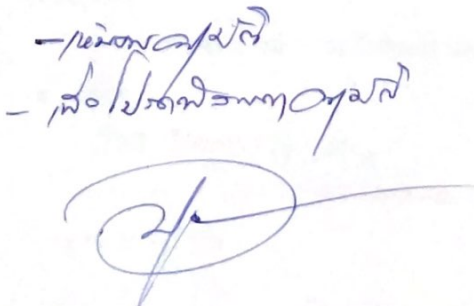 - เห็นควรอนุมัติ
- เพื่อโปรดพิจารณาอนุมัติ